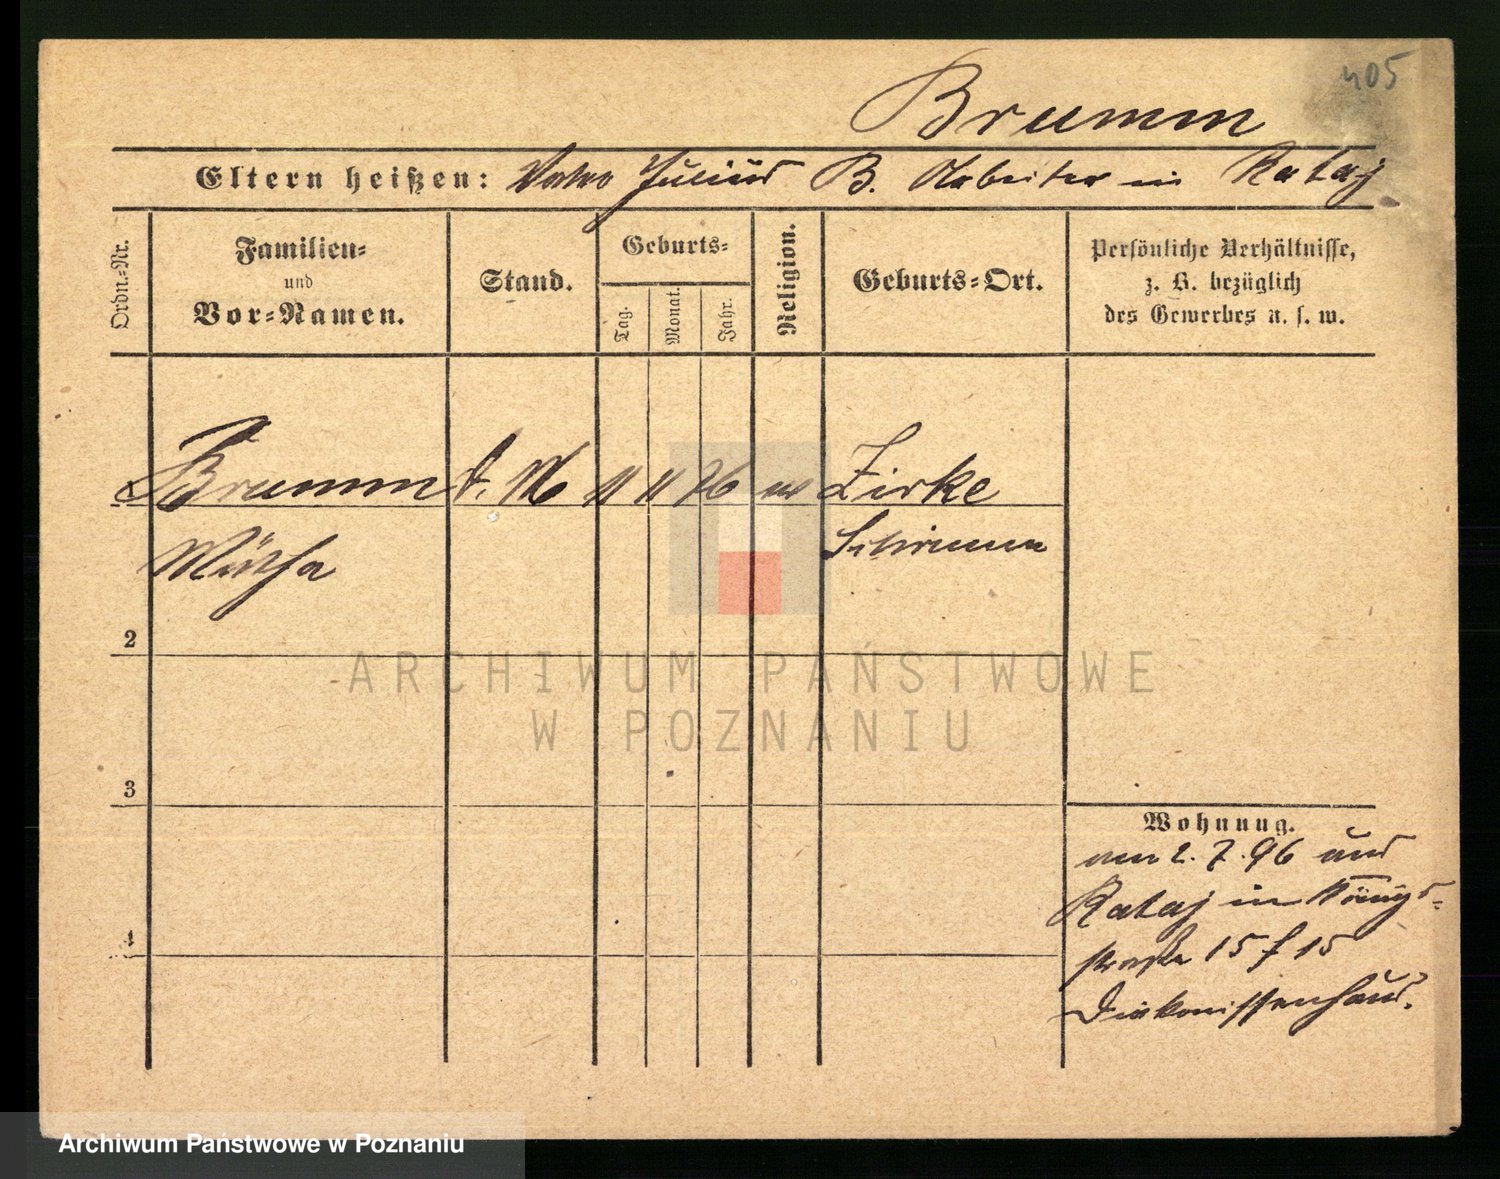 405
Brumm
Eltern heißen: Vater Julius B. Arbeiter in Rataj
Ordn.-Nr.
Familien- und Vor-Namen.
Stand.
Geburts-
Tag.
Monat.
Jahr.
Religion.
Geburts-Ort.
Persönliche Verhältnisse,
z. B. bezüglich
des Gewerbes u. s. w.
Brumm d. M 11 11 76 ev Zirke
Schrimm
2
3
4
Wohnung.
am 2. 7. 96 aus
Rataj in Königs-
straße 15 f 15
Diakonissenhaus.
ARCHIWUM PAŃSTWOWE
W POZNANIU
Archiwum Państwowe w Poznaniu